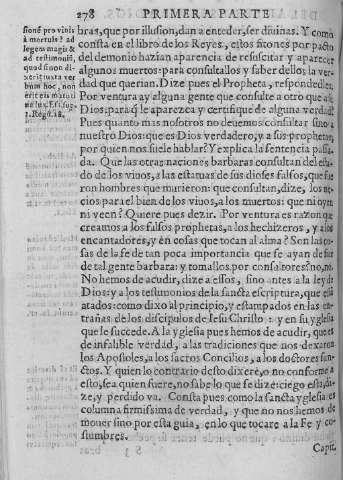 278 PRIMERA PARTE
bras, que por illusion, dan a enteder, ser diuinas. Y como
consta en el libro de los Reyes, estos fitones por pacto
del demonio hazian aparencia de resuscitar y aparecer
algunos muertos: para consultallos y saber dellos la ver
dad que querian. Dize pues el Propheta, respondedles.
Por ventura ay alguna gente que consulte a otro que a su
Dios: para q le aparezca y certifique de alguna verdad?
Pues quanto mas nosotros no deuemos consultar sino a
nuestro Dios: que es Dios verdadero, y a sus prophetas,
por quien nos suele hablar? Y explica la sentencia passa
da. Que las otras naciones barbaras consultan del esta
do de los viuos, a las estatuas de sus dioses falsos, que fue
ron hombres que murieron: que consultan, dize, los ne
cios para el bien de los viuos, a los muertos: que ni oyen
ni veen? Quiere pues dezir. Por ventura es razon que
creamos a los falsos prophetas, a los hechizeros, y a los
encantadores, y en cosas que tocan al alma? Son las co
sas de la fe de tan poca importancia que se ayan de fiar
de tal gente barbara: y tomallos por consultores? no, no.
No hemos de acudir, dize a essos, sino antes a la ley de
Dios: y a los testimonios de la sancta escriptura, que està
atados: como dixo al principio, y estampados en las en-
trañas de los discipulos de Iesu Christo: y en su yglesia
que le succede. A la yglesia pues hemos de acudir, que es
de infalible verdad, a las tradiciones que nos dexaron
los Apostoles, a los sacros Concilios, a los doctores san-
ctos. Y quien lo contrario desto dixere, o no conforme a
esto, sea quien fuere, no sabe lo que se dize: ciego està, di-
ze, y perdido va. Consta pues como la sancta yglesia es
columna firmissima de verdad, y que no nos hemos de
mouer sino por esta guia, en lo que tocare a la Fe y co-
stumbres.
Capit.
sionē pro viuis
à mortuis? ad
legem magis &
ad testimoniū,
quod si non di-
xerit iuxta ver
bum hoc, non
erit eis matuti
na lux.
1. Reg. 28.